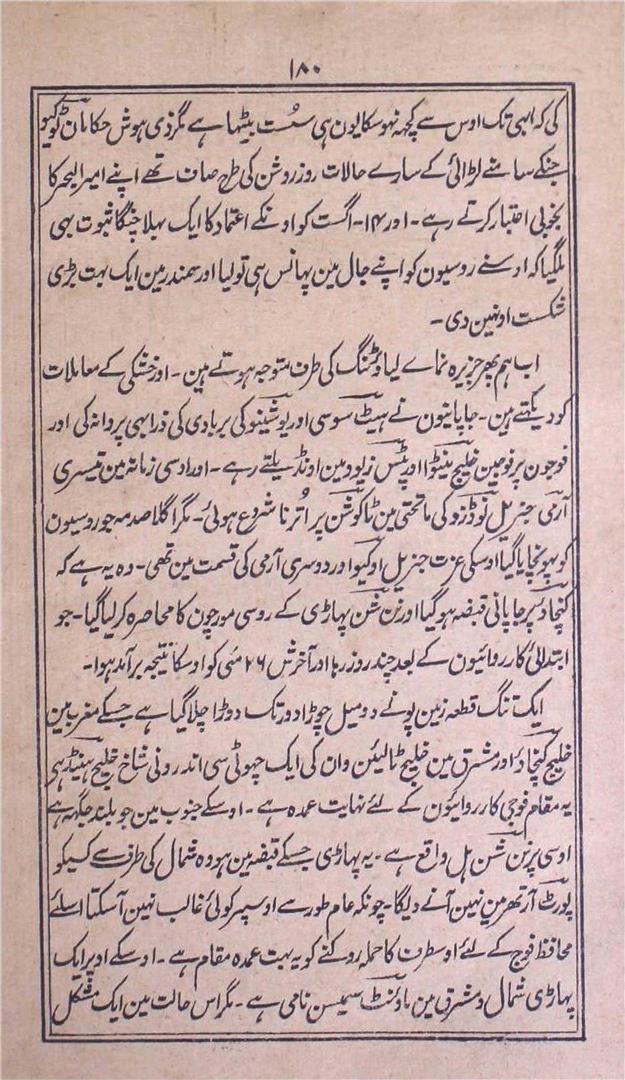 ۱۸۰
کی کہ ابہی تک اوس سے کچہہ نہوسکا یون ہی سُست بیٹہا ہے مگر ذی ہوش حکامان ٹوکیو
جنکے سامنے لڑائی کے سارے حالات روز روشن کی طرح صاف تھے اپنے امیر البحر کا
بخوبی اعتبار کرتے رہے۔ اور ۱۴۔ اگست کو اونکے اعتماد کا ایک پہلا چنگا ثبوت بہی
ملگیا کہ اوسنے روسیون کو اپنے جال مین پہانس ہی تو لیا اور سمندر مین ایک بہت بڑی
شکست اونہین دی۔
اب ہم پھر جزیرہ نمائے لیاوٹنگ کی طرف متوجہ ہوتے ہین۔ اور خشکی کے معاملات
کو دیکہتے ہین۔ جاپانیون نے ہیٹ سوسی اور یوشینو کی بربادی کی ذرا بہی پروا نہ کی اور
فوجون پر فوجین خلیج ینٹوا اور پٹس زیوو مین اونڈیلتے رہے۔ اور اوسی زمانہ مین تیسری
آرمی جنریل نوڈزو کی ماتحتی مین ٹاکوشن پر اُترنا شروع ہوئی۔ مگر اگلا صدمہ جو روسیون
کو پہونچایا گیا اوسکی عزت جنریل اوکیو اور دوسری آرمی کی قسمت مین تھی۔ وہ یہ ہے کہ
کنچاؤ پر جاپانی قبضہ ہو گیا اور نن شن پہاڑی کے روسی مورچون کا محاصرہ کر لیا گیا۔ جو
ابتدائی کارروائیون کے بعد چند روز رہا اور آخرش ۲۶ مئی کو اوسکا نتیجہ برآمد ہوا۔
ایک تنگ قطعہ زمین پونے دو میل چوڑا دور تک دوڑا چلا گیا ہے جسکے مغرب مین
خلیج کنچاؤ اور مشرق مین خلیج ٹالیئن وان کی ایک چہوٹی سی اندرونی شاخ خلیج ہینڈ ہی
یہ مقام فوجی کارروائیون کے لئے نہایت عمدہ ہے۔ اوسکے جنوب مین جو بلند جگہہ ہے
اوسی پر نن شن ہل واقع ہے۔ یہ پہاڑی جسکے قبضہ مین ہو وہ شمال کی طرف سے کسیکو
پورٹ آرتھر مین نہین آنے دیگا۔ چونکہ عام طور سے اوسپر کوئی غالب نہین آسکتا اسلئے
محافظ فوج کے لئے اوسطرف کا حملہ روکنے کو یہ بہت عمدہ مقام ہے۔ اوسکے اوپر ایک
پہاڑی شمال و مشرق مین ماؤنٹ سمپسن نامی ہے۔ مگر اس حالت مین ایک مشکل